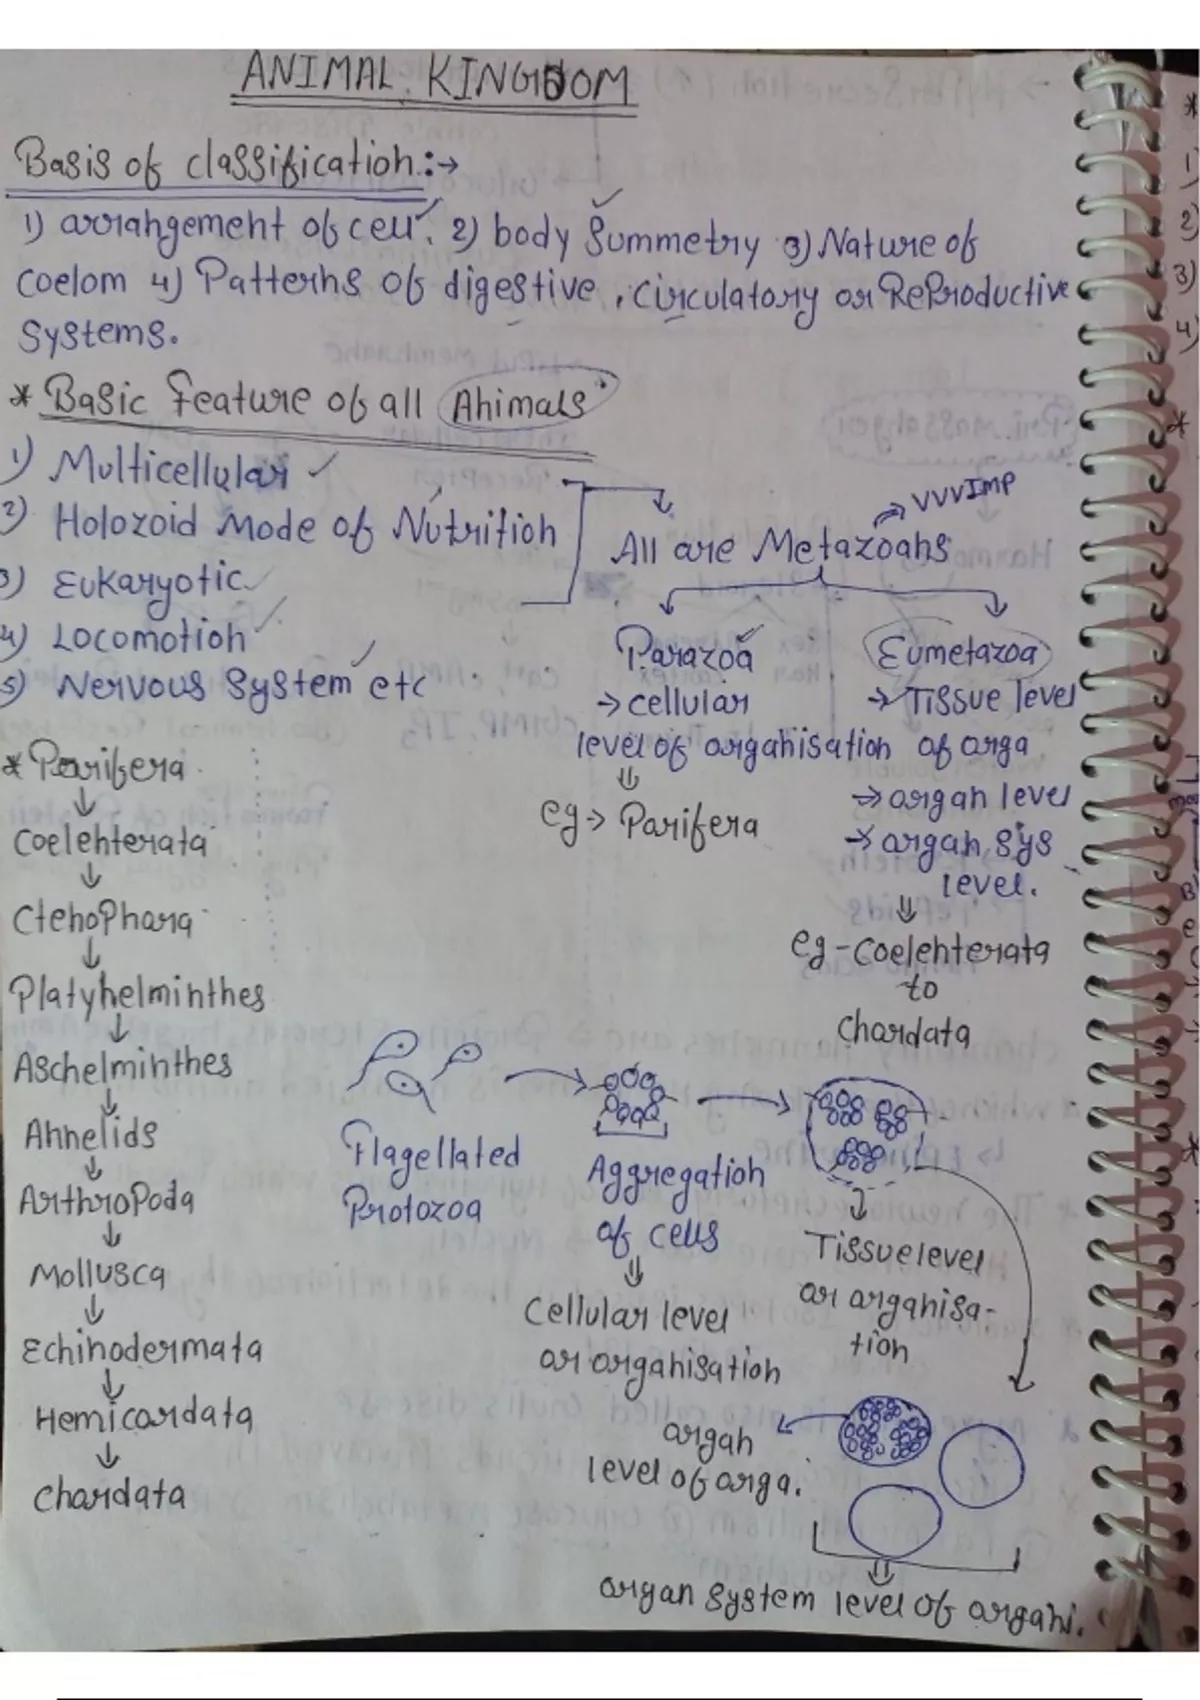 ANIMAL KINGDOM
Basis of classification :→
1) arrangement of cell. 2) body Summetry 3) Nature of
coelom 4) Patterns of digestive, circulatory or Reproductive
systems.
* Basic feature of all Animals
1) Multicellular
2) Holozoid Mode of Nutrition
3) Eukaryotic
4) Locomotion
5) Nervous System etc
VVVIMP
All are Metazoans
Parazoa
→ cellular
level of organisation
eg → Porifera
Eumetazoa
→ Tissue level
of orga
→ organ level
→ organ sys
level.
eg - Coelenterata
to
Chordata
* Porifera
Coelenterata
Ctenophora
Platyhelminthes
Aschelminthes
Annelids
Arthropoda
Mollusca
Echinodermata
Hemicordata
Chordata
Flagellated
Protozoa
Aggregation
of cells
Cellular level
or organisation
Tissue level
or organisa-
tion
organ
level of orga.
organ system level of organi.